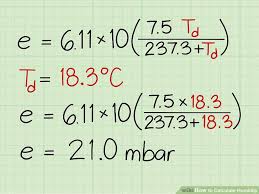 e = 6.11 × 10(7.5 Td / 237.3 + Td)
Td = 18.3°C
e = 6.11 × 10(7.5 × 18.3 / 237.3 + 18.3)
e = 21.0 mbar
wikiHow to Calculate Humidity